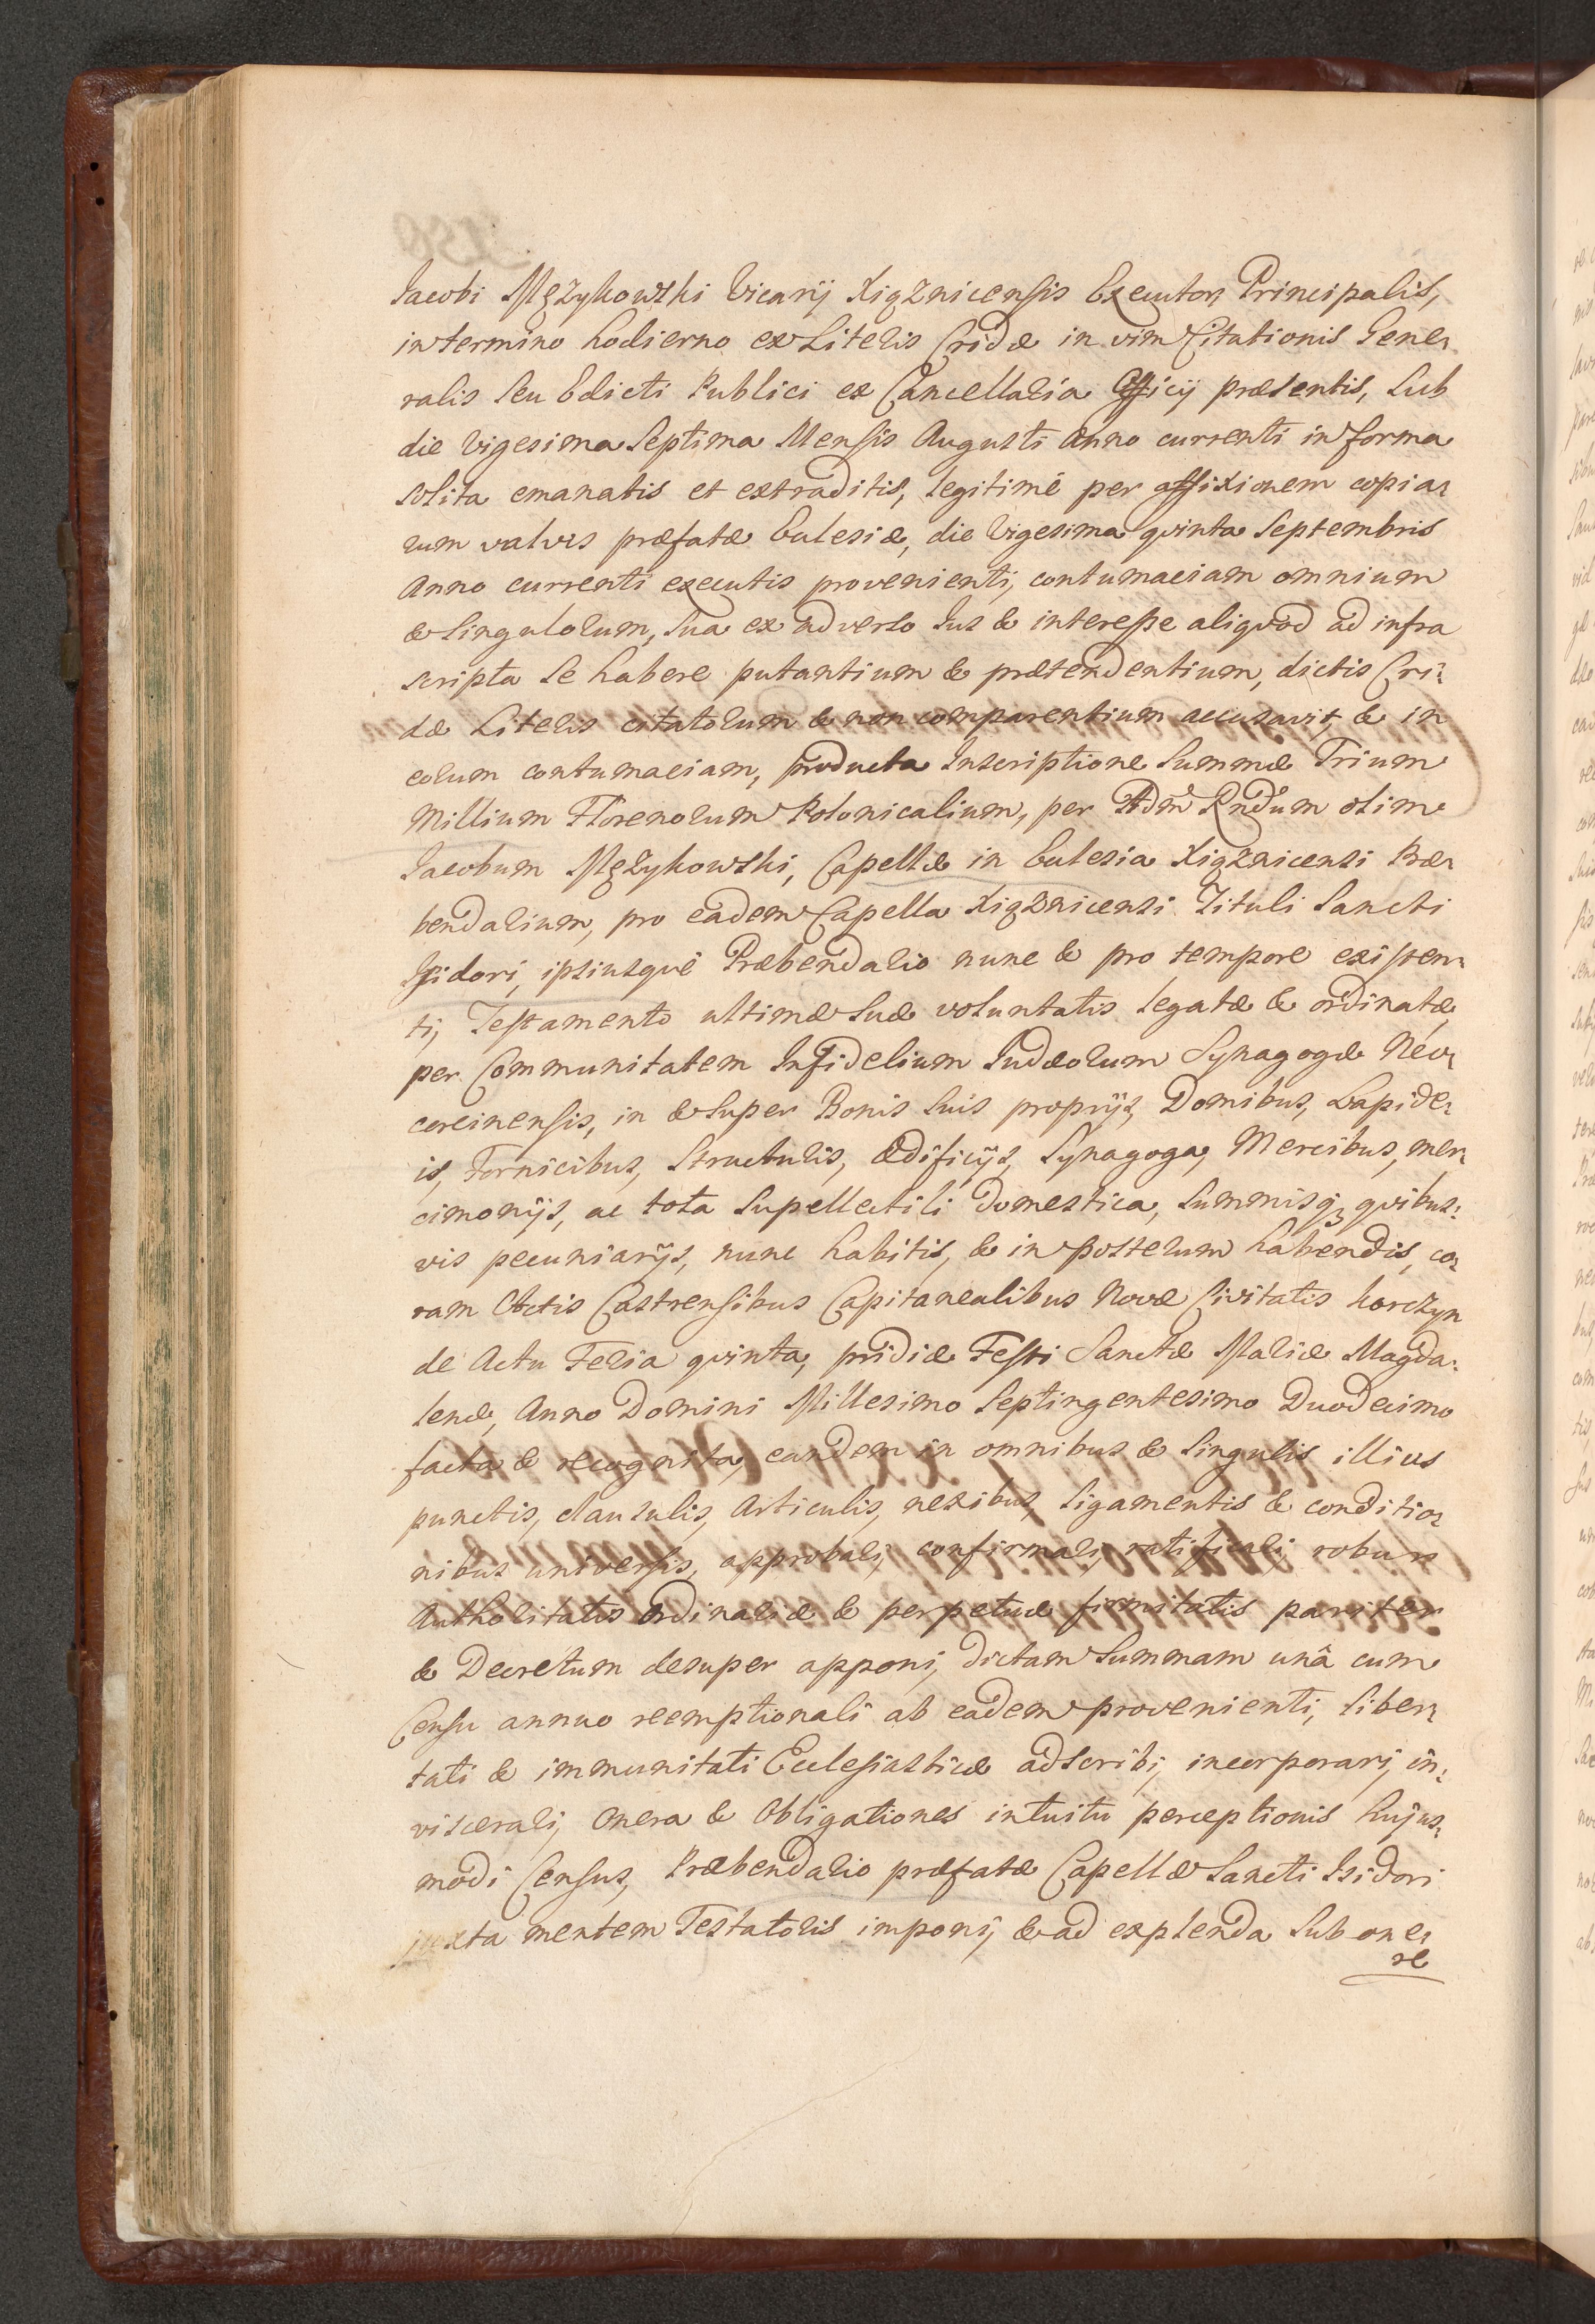 Iacobi Mężykowski Vicarij Xiąznicensis Executor Principalis,
in termino hodierno ex Literis Cridæ in vim Citationis Gene-
ralis seu Edicti Publici ex Cancellaria Officij præsentis, sub
die Vigesima Septima Mensis Augusti Anno currenti in forma
solita emanatis et extraditis, legitimè per affixionem copia-
rum valvis præfatæ Eclesiæ, die Vigesima qvinta Septembris
Anno currenti executis provenienti, contumaciam omnium
& singulorum, sua ex adverso Ius & interesse aliqvod ad infra
scripta se habere putantium & prætendentium, dictis Cri-
dæ Literis citatorum & non comparentium accusavit, & in
eorum contumaciam, producta Inscriptione Summæ Trium
Millium Florenorum Polonicalium, per Adm Rndum olim
Iacobum Mężykowski, Capellæ in Eclesia Xiąznicensi Præ-
bendarium, pro eadem Capella Xiąznicensi Tituli Sancti
Isidori, ipsiusqvè Præbendario nunc & pro tempore existen-
ti, Testamento ultimæ suæ voluntatis legatæ & ordinatæ,
per Communitatem Infidelium Iudæorum Synagogæ Neo-
corcinensis, in & super Bonis suis proprijs, Domibus, Lapide-
is, Fornicibus, Structuris, Ædificijs, Synagoga, Mercibus, mer-
cimonijs, ac tota Supellectili domestica, Summisq3 qvibus-
vis pecuniarijs, nunc habitis, & in posterum habendis, co-
ram Actis Castrensibus Capitanealibus Novæ Civitatis Korczyn
de Actu Feria qvinta, pridie Festi Sanctæ Mariæ Magda-
lenæ, Anno Domini Millesimo Septingentesimo Duodecimo
facta & recognita, eandem in omnibus & singulis illius
punctis, clausulis, Articulis, nexibus, ligamentis & conditio-
nibus universis, approbari, confirmari, ratificari, robur
Authoritatis Ordinariæ & perpetuæ firmitatis pariter
& Decretum desuper apponi, dictam Summam unâ cum
Censu annuo reemptionali ab eadem provenienti, liber-
tati & immunitati Ecclesiasticæ adscribi, incorporari, in-
viscerari, Onera & Obligationes intuitu perceptionis hujus-
modi Census, Præbendario præfatæ Capellæ Sancti Isidori
juxta mentem Testatoris imponi, & ad explenda sub one-
re